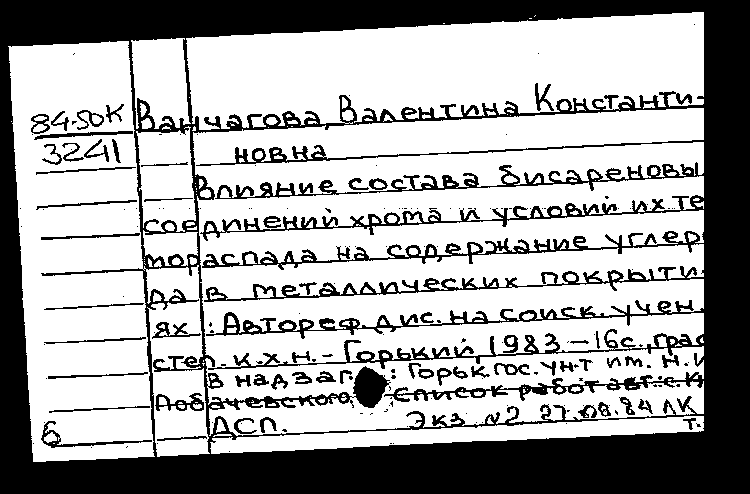 84-50К Ванчагова, Валентина Константи-
3241 новна
Влияние состава бисареновы
соединений хрома и условий их те
мораспада на содержание углер
да в металлических покрыти-
ях : Автореф. дис. на соиск. учен.
степ. к.х.н. - Горький, 1983 - 16с., граф
В надзаг. : Горьк. гос. ун-т им. Н.И
Лобачевского. Список работ авт.: с.
ДСП. Экз №2 27.08.84 ЛК
6 Т.